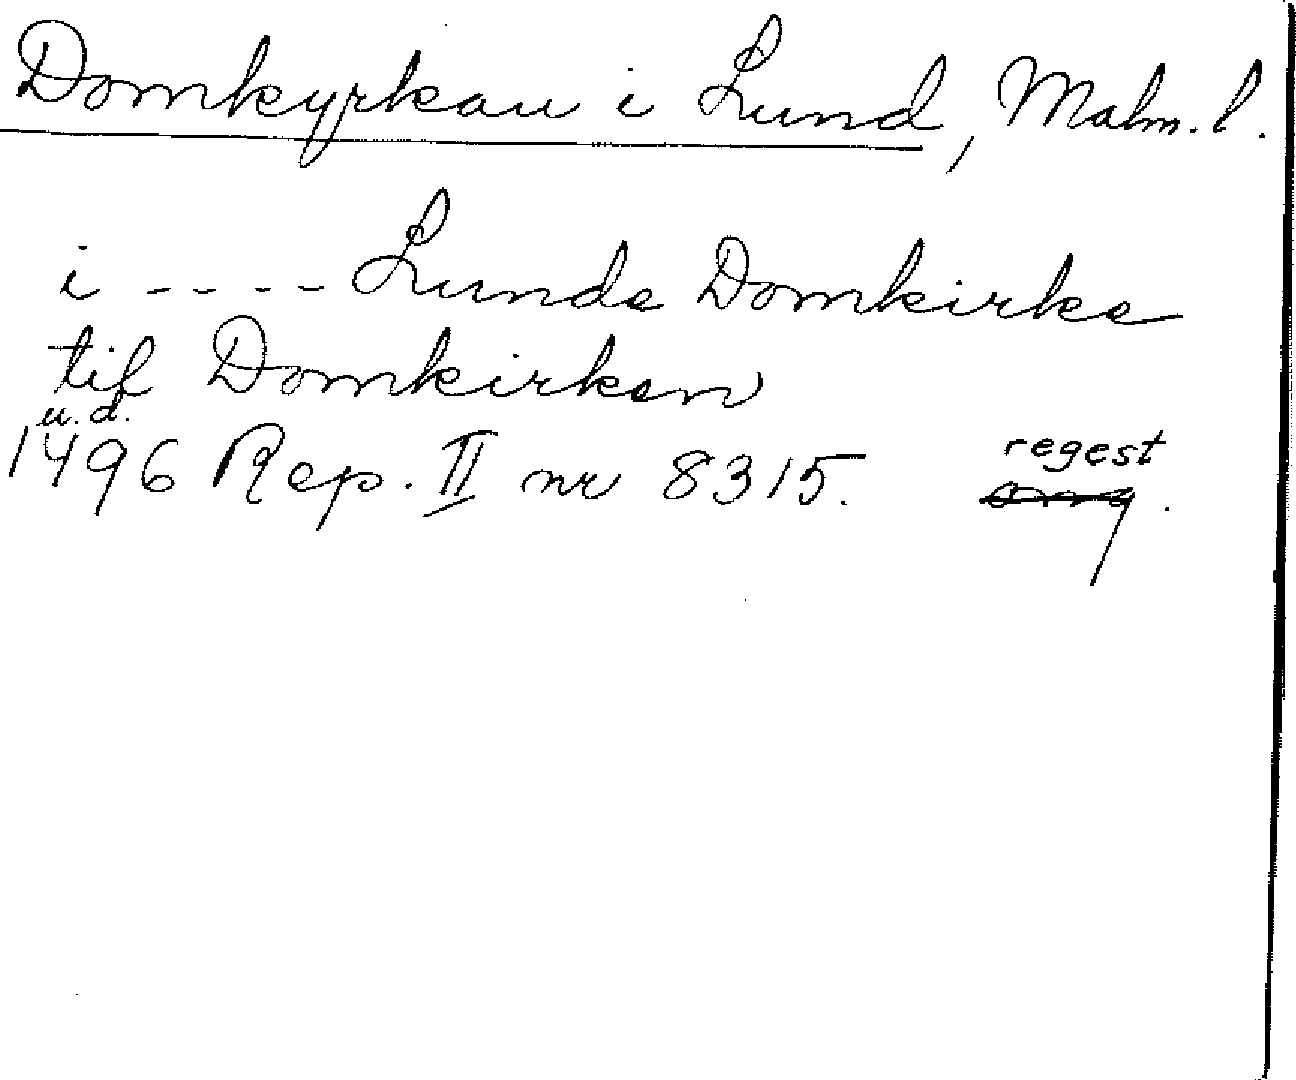 Domkyrkan i Lund, Malm. l.
i ---- Lunde Domkirke
til Domkirken
u. d.
1496 Rep. II nr 8315. regest
omg.